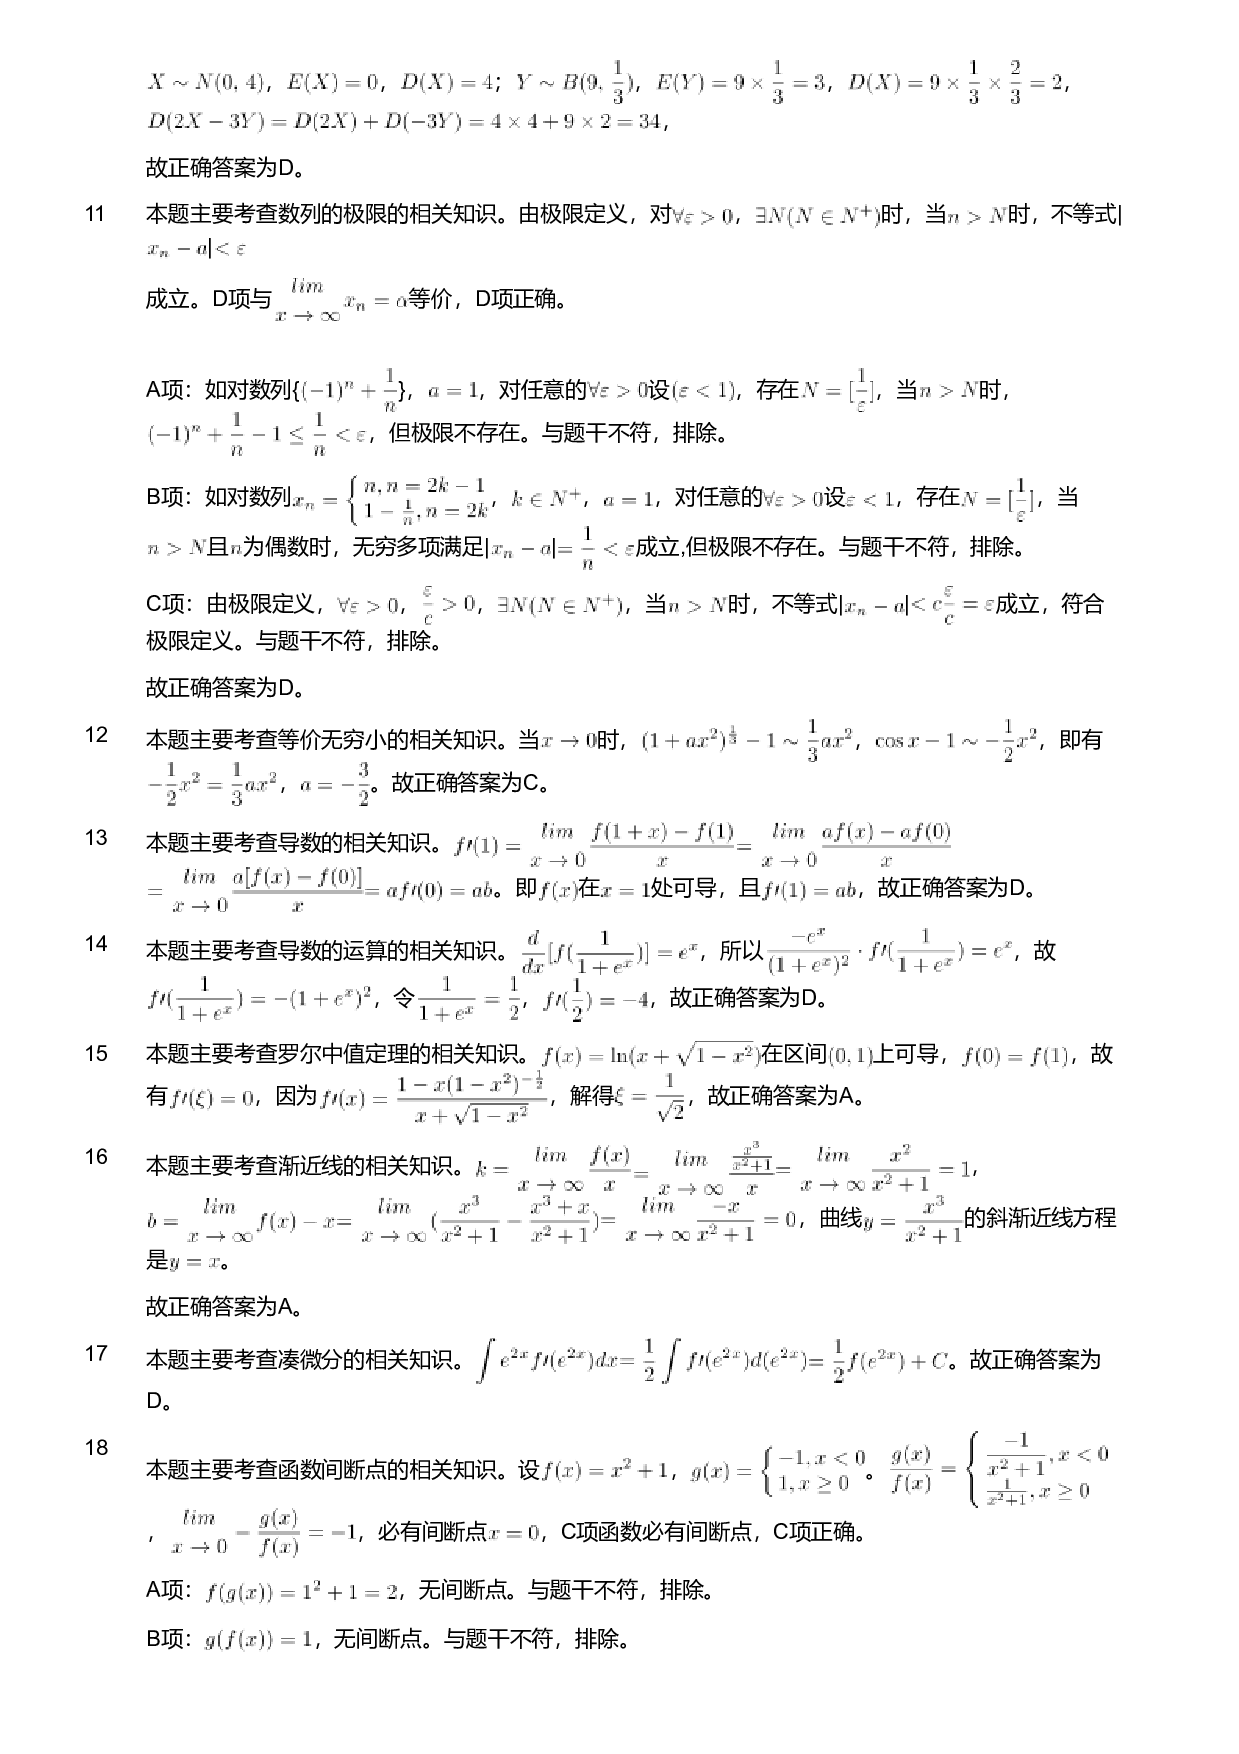 X ∼ N(0, 4)，E(X) = 0，D(X) = 4；Y ∼ B(9, 1/3)，E(Y) = 9 × 1/3 = 3，D(X) = 9 × 1/3 × 2/3 = 2，
D(2X − 3Y) = D(2X) + D(−3Y) = 4 × 4 + 9 × 2 = 34，
故正确答案为D。
11 本题主要考查数列的极限的相关知识。由极限定义，对∀ε > 0，∃N(N ∈ N⁺)时，当n > N时，不等式|
xₙ − a|< ε
成立。D项与 lim x → ∞ xₙ = α等价，D项正确。
A项：如对数列{(−1)ⁿ + 1/n}，a = 1，对任意的∀ε > 0设(ε < 1)，存在N = [1/ε]，当n > N时，
(−1)ⁿ + 1/n − 1 ≤ 1/n < ε，但极限不存在。与题干不符，排除。
B项：如对数列xₙ = { n, n = 2k − 1; 1 − 1/n, n = 2k，k ∈ N⁺，a = 1，对任意的∀ε > 0设ε < 1，存在N = [1/ε]，当
n > N且n为偶数时，无穷多项满足|xₙ − a|= 1/n < ε成立,但极限不存在。与题干不符，排除。
C项：由极限定义，∀ε > 0，ε/c > 0，∃N(N ∈ N⁺)，当n > N时，不等式|xₙ − a|< c ε/c = ε成立，符合
极限定义。与题干不符，排除。
故正确答案为D。
12 本题主要考查等价无穷小的相关知识。当x → 0时，(1 + ax²)^(1/3) − 1 ∼ 1/3 ax²，cos x − 1 ∼ −1/2 x²，即有
−1/2 x² = 1/3 ax²，a = −3/2。故正确答案为C。
13 本题主要考查导数的相关知识。f′(1) = lim x → 0 (f(1 + x) − f(1))/x = lim x → 0 (af(x) − af(0))/x
= lim x → 0 a[f(x) − f(0)]/x = af′(0) = ab。即f(x)在x = 1处可导，且f′(1) = ab，故正确答案为D。
14 本题主要考查导数的运算的相关知识。d/dx [f(1/(1 + eˣ))] = eˣ，所以 −eˣ/(1 + eˣ)² · f′(1/(1 + eˣ)) = eˣ，故
f′(1/(1 + eˣ)) = −(1 + eˣ)²，令 1/(1 + eˣ) = 1/2，f′(1/2) = −4，故正确答案为D。
15 本题主要考查罗尔中值定理的相关知识。f(x) = ln(x + √(1 − x²))在区间(0, 1)上可导，f(0) = f(1)，故
有f′(ξ) = 0，因为f′(x) = (1 − x(1 − x²)^(−1/2))/(x + √(1 − x²))，解得ξ = 1/√2，故正确答案为A。
16 本题主要考查渐近线的相关知识。k = lim x → ∞ f(x)/x = lim x → ∞ (x³/(x²+1))/x = lim x → ∞ x²/(x² + 1) = 1，
b = lim x → ∞ f(x) − x = lim x → ∞ (x³/(x² + 1) − (x³ + x)/(x² + 1)) = lim x → ∞ −x/(x² + 1) = 0，曲线y = x³/(x² + 1)的斜渐近线方程
是y = x。
故正确答案为A。
17 本题主要考查凑微分的相关知识。∫ e²ˣf′(e²ˣ)dx = 1/2 ∫ f′(e²ˣ)d(e²ˣ) = 1/2 f(e²ˣ) + C。故正确答案为
D。
18 本题主要考查函数间断点的相关知识。设f(x) = x² + 1，g(x) = { −1, x < 0; 1, x ≥ 0。g(x)/f(x) = { −1/(x² + 1), x < 0; 1/(x²+1), x ≥ 0
，lim x → 0 − g(x)/f(x) = −1，必有间断点x = 0，C项函数必有间断点，C项正确。
A项：f(g(x)) = 1² + 1 = 2，无间断点。与题干不符，排除。
B项：g(f(x)) = 1，无间断点。与题干不符，排除。